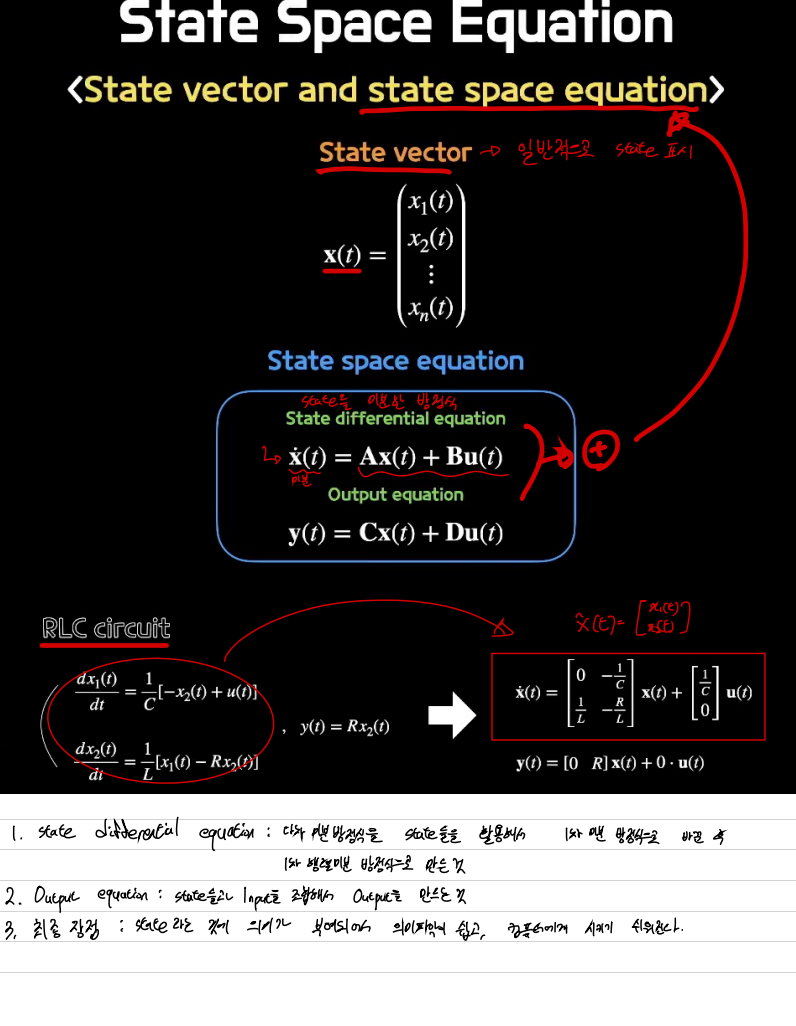 State Space Equation
<State vector and state space equation>
State vector → 일반적으로 state 표시
x(t) = (x₁(t) x₂(t) ⋮ xₙ(t))
State space equation
state를 미분한 방정식
State differential equation
ẋ(t) = Ax(t) + Bu(t)
미분
Output equation
y(t) = Cx(t) + Du(t)
+
RLC circuit
x̂(t) = [x₁(t) x₂(t)]
dx₁(t)/dt = 1/C[-x₂(t) + u(t)]
dx₂(t)/dt = 1/L[x₁(t) − Rx₂(t)]
, y(t) = Rx₂(t)
ẋ(t) = [0 -1/C 1/L -R/L] x(t) + [1/C 0] u(t)
y(t) = [0 R] x(t) + 0 · u(t)
1. state differential equation : 다차 미분방정식을 state들을 활용해서 1차 미분 방정식으로 바꾼 후
1차 행렬미분 방정식으로 만든 것
2. Output equation : state들과 Input을 조합해서 Output을 만드는 것
3. 최종 장점 : state 라는 것에 의미가 부여되어서 의미파악이 쉽고, 컴퓨터에게 시키기 쉬워진다.